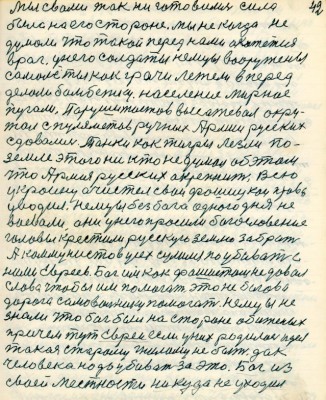 42
Мы с вами так ни готовились сила
была на его стороне. мы не когда не
думали что такой перед нами окажется
враг, у него солдаты немцы вооружены
самолёты как грачи летели вперед
делали бомбёжку. население мирное
пугали. Парушистов высадевал окру-
жал с пулеметов ручных Армии русских
сдовали. Танки как тигры лезли по
земле этого ни кто не думал об этом
что Армия русских окрепнит. Всю
украину очистел свои фрошискую кровь
уводил. Немцы без бога одного дня не
воевали, они у него просили богословение
головы крестили русскую землю забрат
А коммунистов усех сумели поубивать с
ними Евреев. Бог им как фашистам не довал
слова чтобы им помогат. это не богова
дорога самовольнику помогать. Немцы не
знали что бог был на стороне обиженых
причем тут Евреи если у них родилась идея
такая старому жилищу не быть. дак
человека надо убивать за это. Бог из
своей местности никуда не уходил